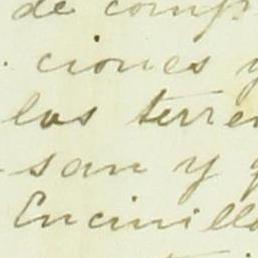 de comp
ciones y
los terre
san y q
Encinillo